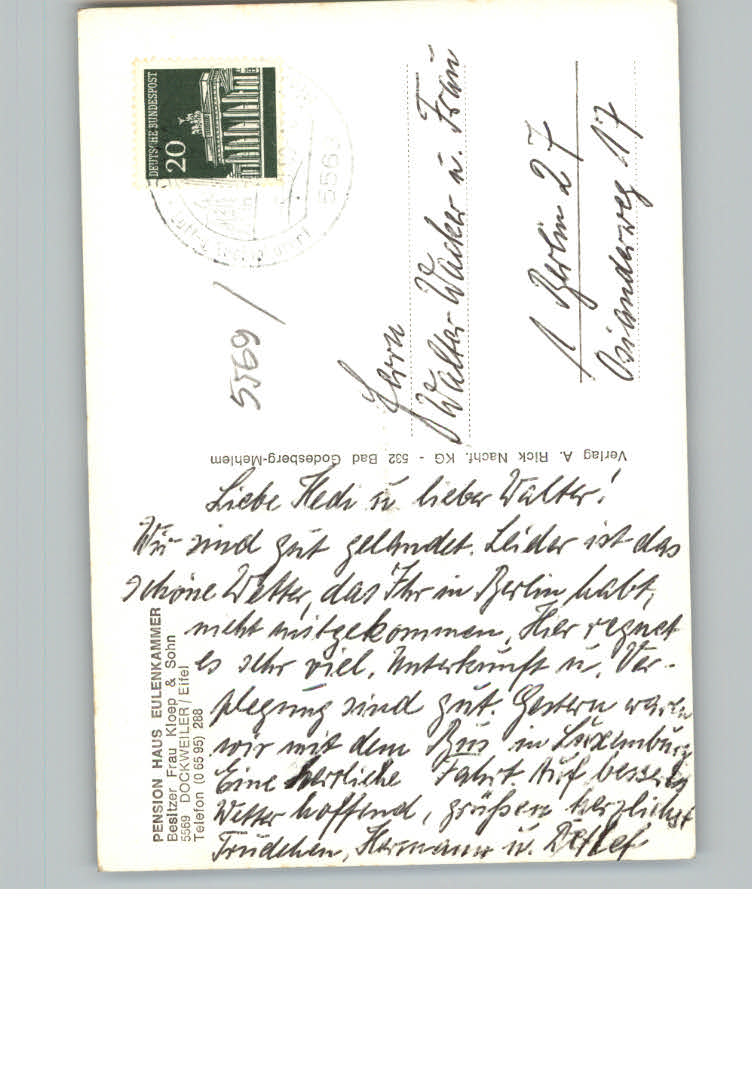 DEUTSCHE BUNDESPOST
20
5569
5569 /
Herrn
Walter Wacker u. Frau
1 Berlin 27
Osianderweg 17
Verlag A. Rick Nachf. KG - 532 Bad Godesberg-Mehlem
PENSION HAUS EULENKAMMER
Besitzer Frau Kloep & Sohn
5569 DOCKWEILER / Eifel
Telefon (0 65 95) 288
Liebe Hedi u lieber Walter!
Wir sind gut gelandet. Leider ist das
schöne Wetter, das Ihr in Berlin habt,
nicht mitgekommen. Hier regnet
es sehr viel. Unterkunft u. Ver-
plegung sind gut. Gestern waren
wir mit dem Bus in Luxemburg
Eine herrliche Fahrt. Auf besseres
Wetter hoffend, grüßen herzlichst
Trudchen, Hermann u. Detlef